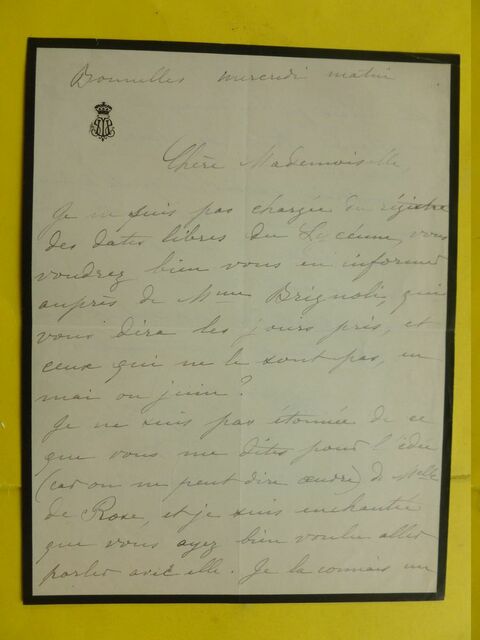 Bonnelles mercredi matin
Chère Mademoiselle,
Je ne suis pas chargée du régistre
des dates libres du Lyceum, vous
voudrez bien vous en informer
auprès de Mme Brignoli, qui
vous dira les jours pris, et
ceux qui ne le sont pas, en
mai ou juin ?
Je ne suis pas étonnée de ce
que vous me dites pour l'idée
(car on ne peut dire œuvre) de Melle
de Rose, et je suis enchantée
que vous ayez bien voulu aller
parler avec elle. Je la connais un